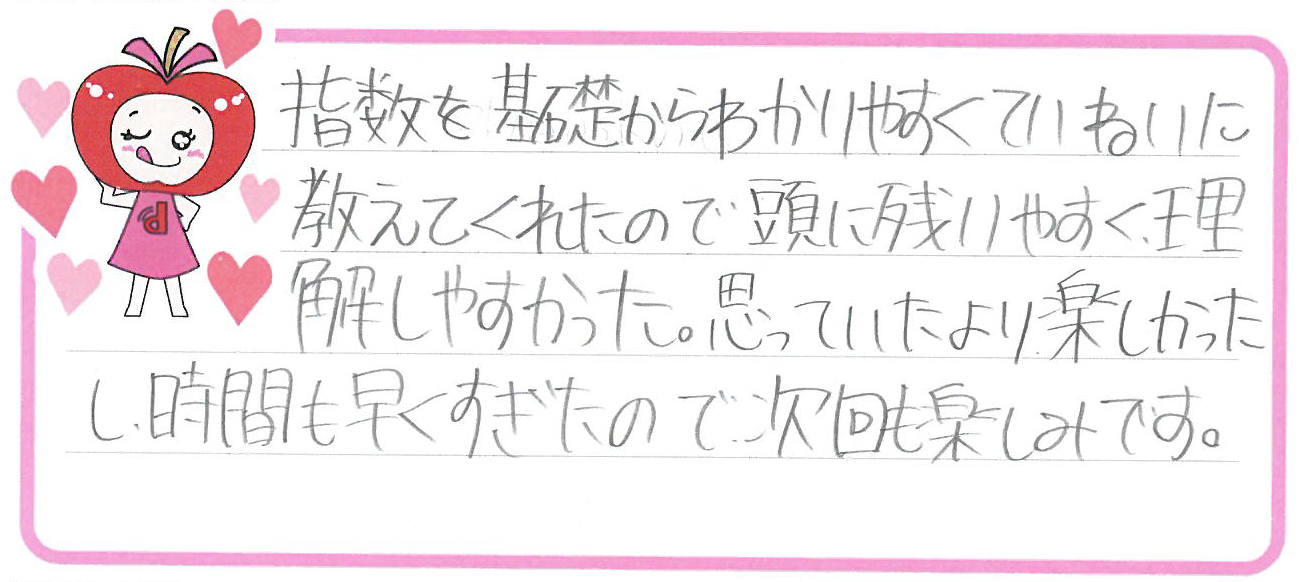 指数を基礎からわかりやすくていねいに
教えてくれたので頭に残りやすく、理
解しやすかった。思っていたより楽しかった
し、時間も早くすぎたので、次回も楽しみです。